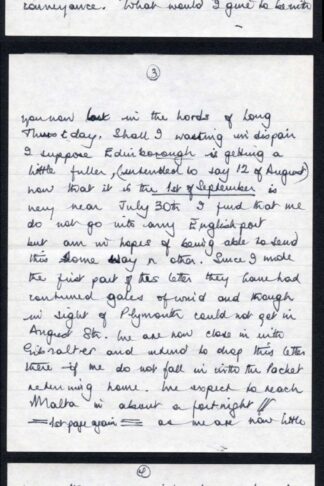 conveyance. What would I give to be with
3
you now lost in the hords of Long
Thurstday. Shall I wasting in dispair
I suppose Edinborough is getting a
little fuller, (intended to say 12 of August)
now that it is the 1st of September is
very near July 30th I find that we
do not go into any English port
but am in hopes of being able to send
this some way or other. Since I wrote
the first part of this letter they have had
continued gales of wind and though
in sight of Plymouth could not get in
August 8th. We are now close in with
Gibralter and intend to drop this letter
there if we do not fall in with the Packet
returning home. We expect to reach
Malta in about a fortnight //
1st page again as we are now little
4